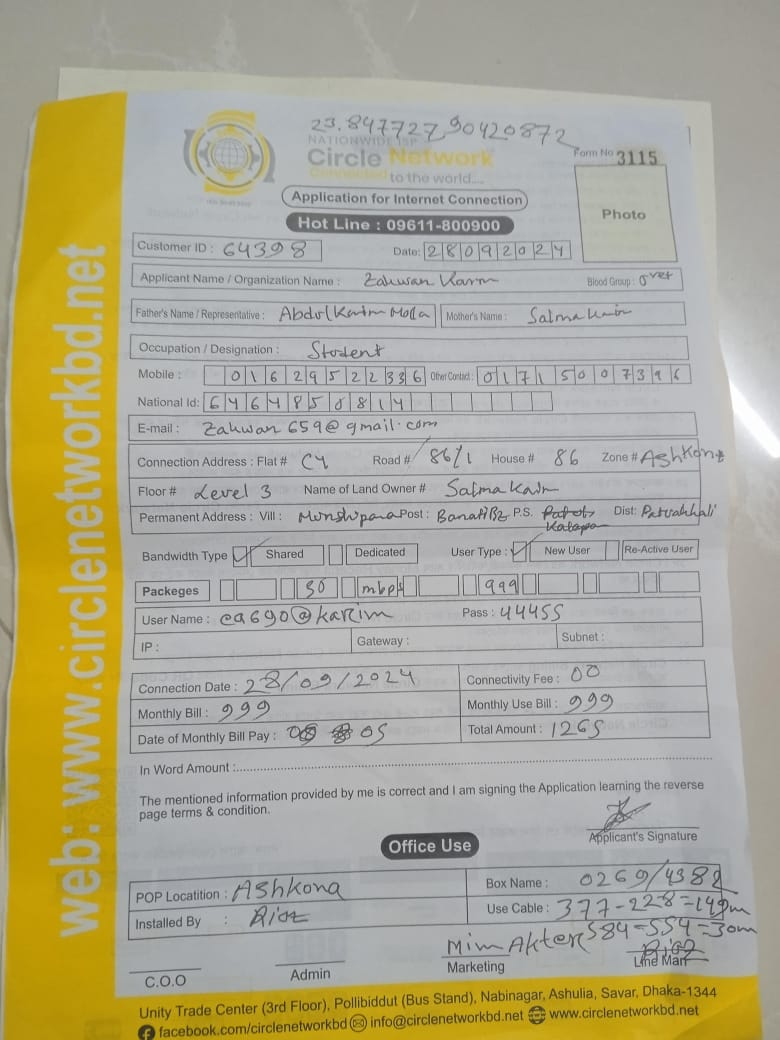 23.847727,90420872
NATIONWIDE ISP
Circle Network
Connected to the world....
Form No 3115
Application for Internet Connection
Photo
Hot Line : 09611-800900
Customer ID : 64398 Date: 28092024
Applicant Name / Organization Name : Zahwan Karim Blood Group : O+ve
Father's Name / Representative : Abdul Karim Molla Mother's Name : Salma Karim
Occupation / Designation : Student
Mobile : 01629522336 Other Contact : 01715007396
National Id: 6464850814
E-mail : Zahwan659@gmail.com
Connection Address : Flat # C4 Road # 86/1 House # 86 Zone # Ashkona
Floor # Level 3 Name of Land Owner # Salma Karim
Permanent Address : Vill : Munshipara Post : P.S. Kalapara Dist: Patuakhali
Bandwidth Type ✓ Shared Dedicated User Type : ✓ New User Re-Active User
Packeges 30 mbps 999
User Name : ca690@karim Pass : 44455
IP : Gateway : Subnet :
Connection Date : 28/09/2024 Connectivity Fee : 00
Monthly Bill : 999 Monthly Use Bill : 999
Date of Monthly Bill Pay : 05 Total Amount : 1265
In Word Amount :
The mentioned information provided by me is correct and I am signing the Application learning the reverse
page terms & condition.
Applicant's Signature
Office Use
POP Locatition : Ashkona Box Name : 0269/4382
Installed By : Riaz Use Cable : 377-228=149m
584-554=30m
Mim Akter Riaz
C.O.O Admin Marketing Line Man
Unity Trade Center (3rd Floor), Pollibiddut (Bus Stand), Nabinagar, Ashulia, Savar, Dhaka-1344
facebook.com/circlenetworkbd info@circlenetworkbd.net www.circlenetworkbd.net
web: www.circlenetworkbd.net